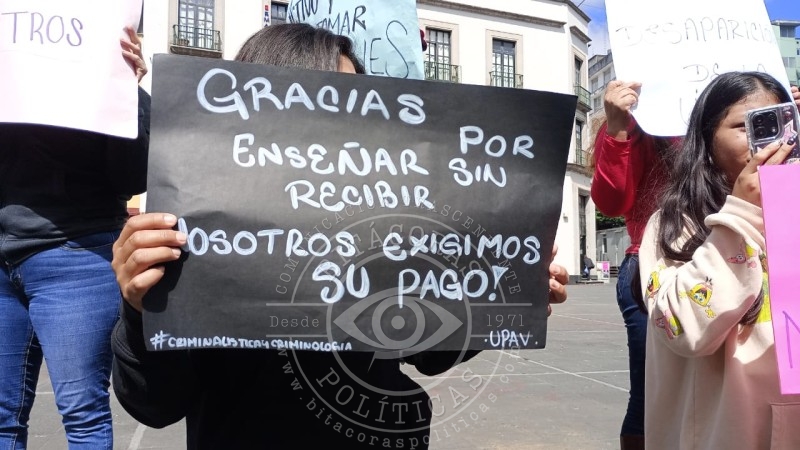 TROS
TOMAR
ES
DESAPARICI
DE LA
GRACIAS POR
ENSEÑAR SIN
RECIBIR
NOSOTROS EXIGIMOS
SU PAGO!
#CRIMINALISTICAYCRIMINOLOGIA
.UPAV.
BITÁCORAS
Desde 1971
POLÍTICAS
www.bitacoraspoliticas.com